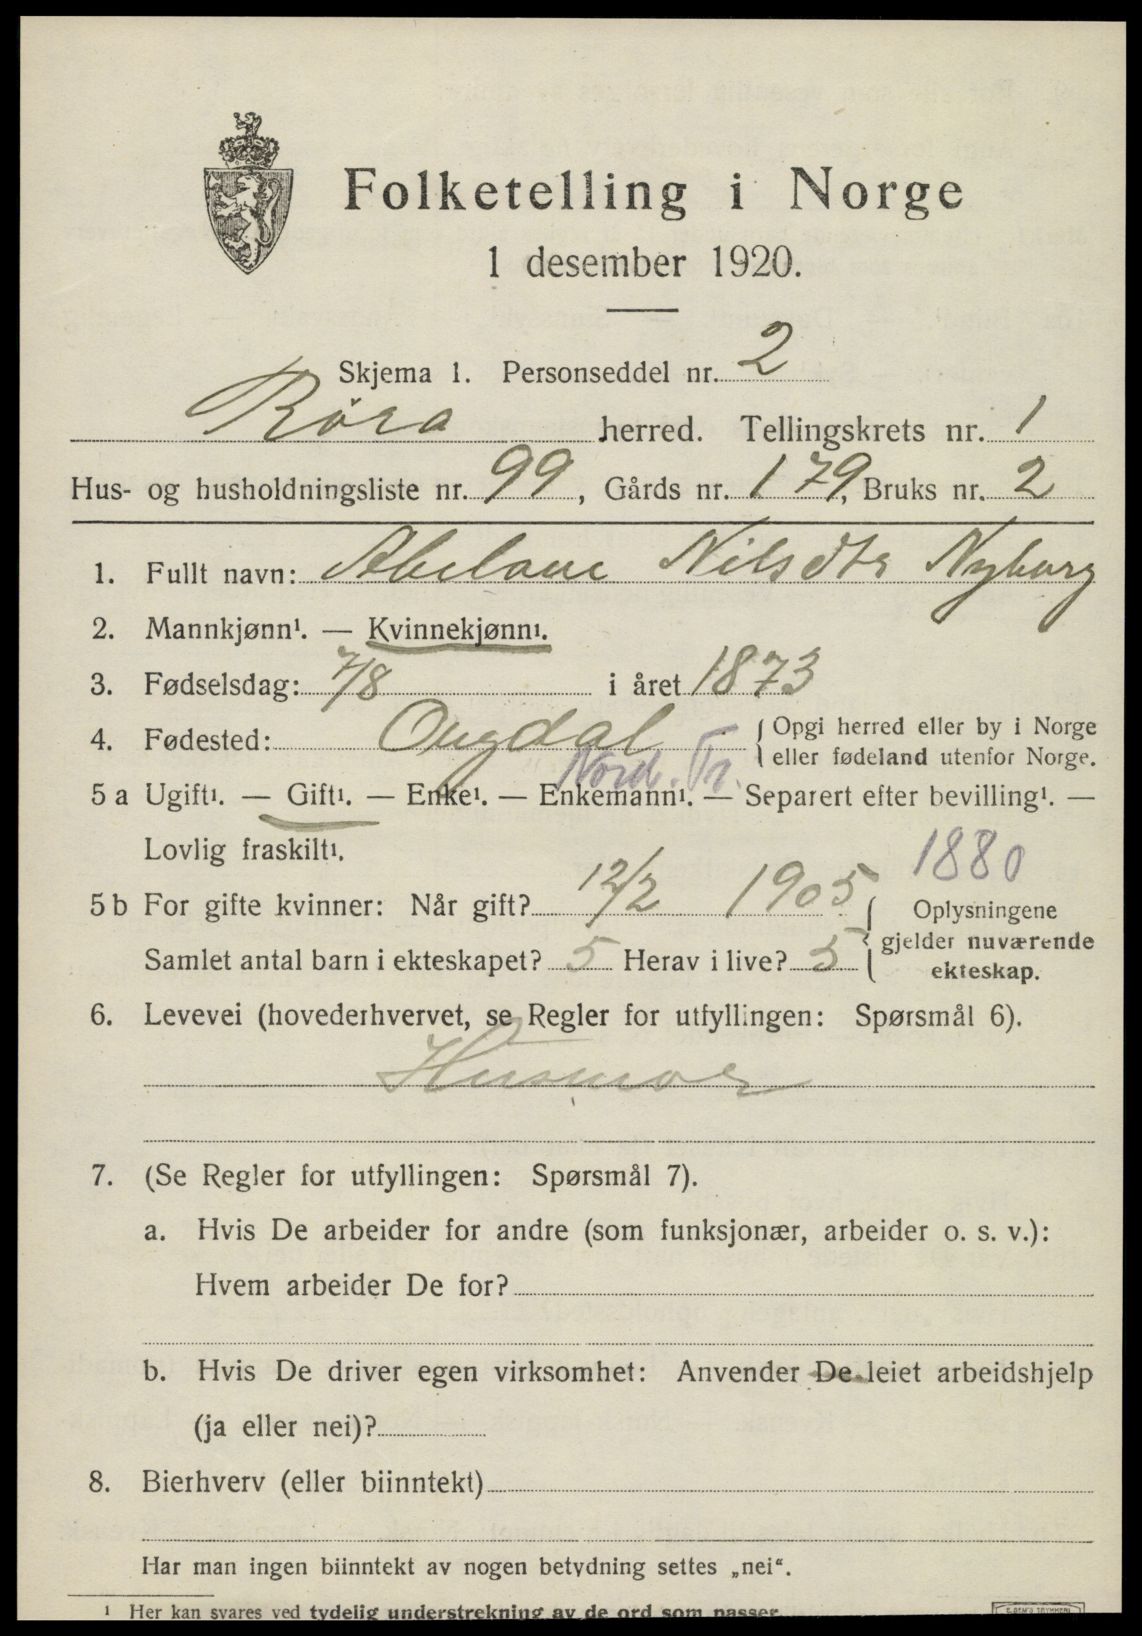 Folketelling i Norge
1 desember 1920.
Skjema 1. Personseddel nr. 2
Røra herred. Tellingskrets nr. 1
Hus- og husholdningsliste nr. 99, Gårds nr. 179, Bruks nr. 2
1. Fullt navn: Abelone Nilsdtr Nyborg
2. Mannkjønn¹. — Kvinnekjønn¹.
3. Fødselsdag: 7/8 i året 1873
4. Fødested: Ougdal {Opgi herred eller by i Norge
eller fødeland utenfor Norge.
Nord. Tr.
5 a Ugift¹. — Gift¹. — Enke¹. — Enkemann¹. — Separert efter bevilling¹. —
Lovlig fraskilt¹.
1880
5 b For gifte kvinner: Når gift? 12/2 1905 {Oplysningene
gjelder nuværende
Samlet antal barn i ekteskapet? 5 Herav i live? 5
ekteskap.
6. Levevei (hovederhvervet, se Regler for utfyllingen: Spørsmål 6).
Husmor
7. (Se Regler for utfyllingen: Spørsmål 7).
a. Hvis De arbeider for andre (som funksjonær, arbeider o. s. v.):
Hvem arbeider De for?
b. Hvis De driver egen virksomhet: Anvender De leiet arbeidshjelp
(ja eller nei)?
8. Bierhverv (eller biinntekt)
Har man ingen biinntekt av nogen betydning settes „nei“.
¹ Her kan svares ved tydelig understrekning av de ord som passer.